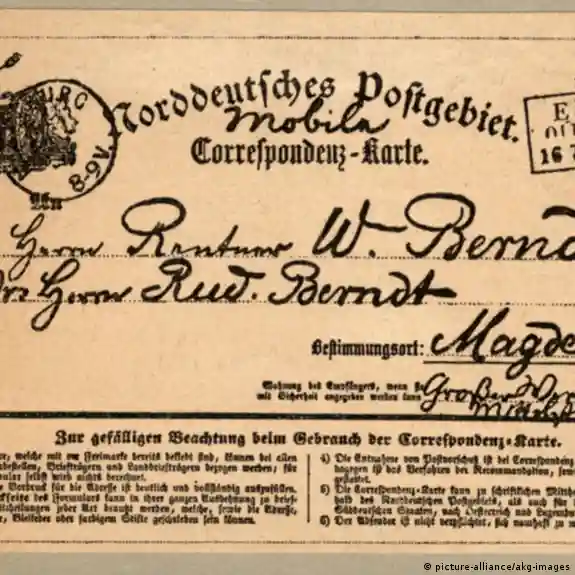 Norddeutsches Postgebiet.
Mobila
Correspondenz-Karte.
BURG
8-9V.
16 7
An
Herrn Rentner W. Bernd
Herrn Rud. Berndt
Bestimmungsort: Magde
Wohnung des Empfängers, wenn sie
mit Sicherheit angegeben werden kann
Großer We
Zur gefälligen Beachtung beim Gebrauch der Correspondenz-Karte.
welche mit der Freimarke bereits beklebt sind, können bei allen
bestellen, Briefträgern und Landbriefträgern bezogen werden; für
mular selbst wird nicht berechnet.
Vordruck für die Adresse ist deutlich und vollständig auszufüllen.
kseite des Formulars kann in ihrer ganzen Ausdehnung zu brief-
ittheilungen jeder Art benutzt werden, welche, sowie die Adresse,
Bleifeder oder farbigem Stifte geschrieben sein können.
4) Die Entnahme von Postvorschuß ist bei Correspondenz
hingegen ist das Verfahren der Recommandation, sow
gestattet.
5) Die Correspondenz-Karte kann zu schriftlichen Mitthe
halb des Norddeutschen Postgebiets, als auch für
Süddeutschen Staaten, nach Oesterreich und Luxembu
6) Der Absender ist nicht verpflichtet, sich namhaft zu m
© picture-alliance/akg-images